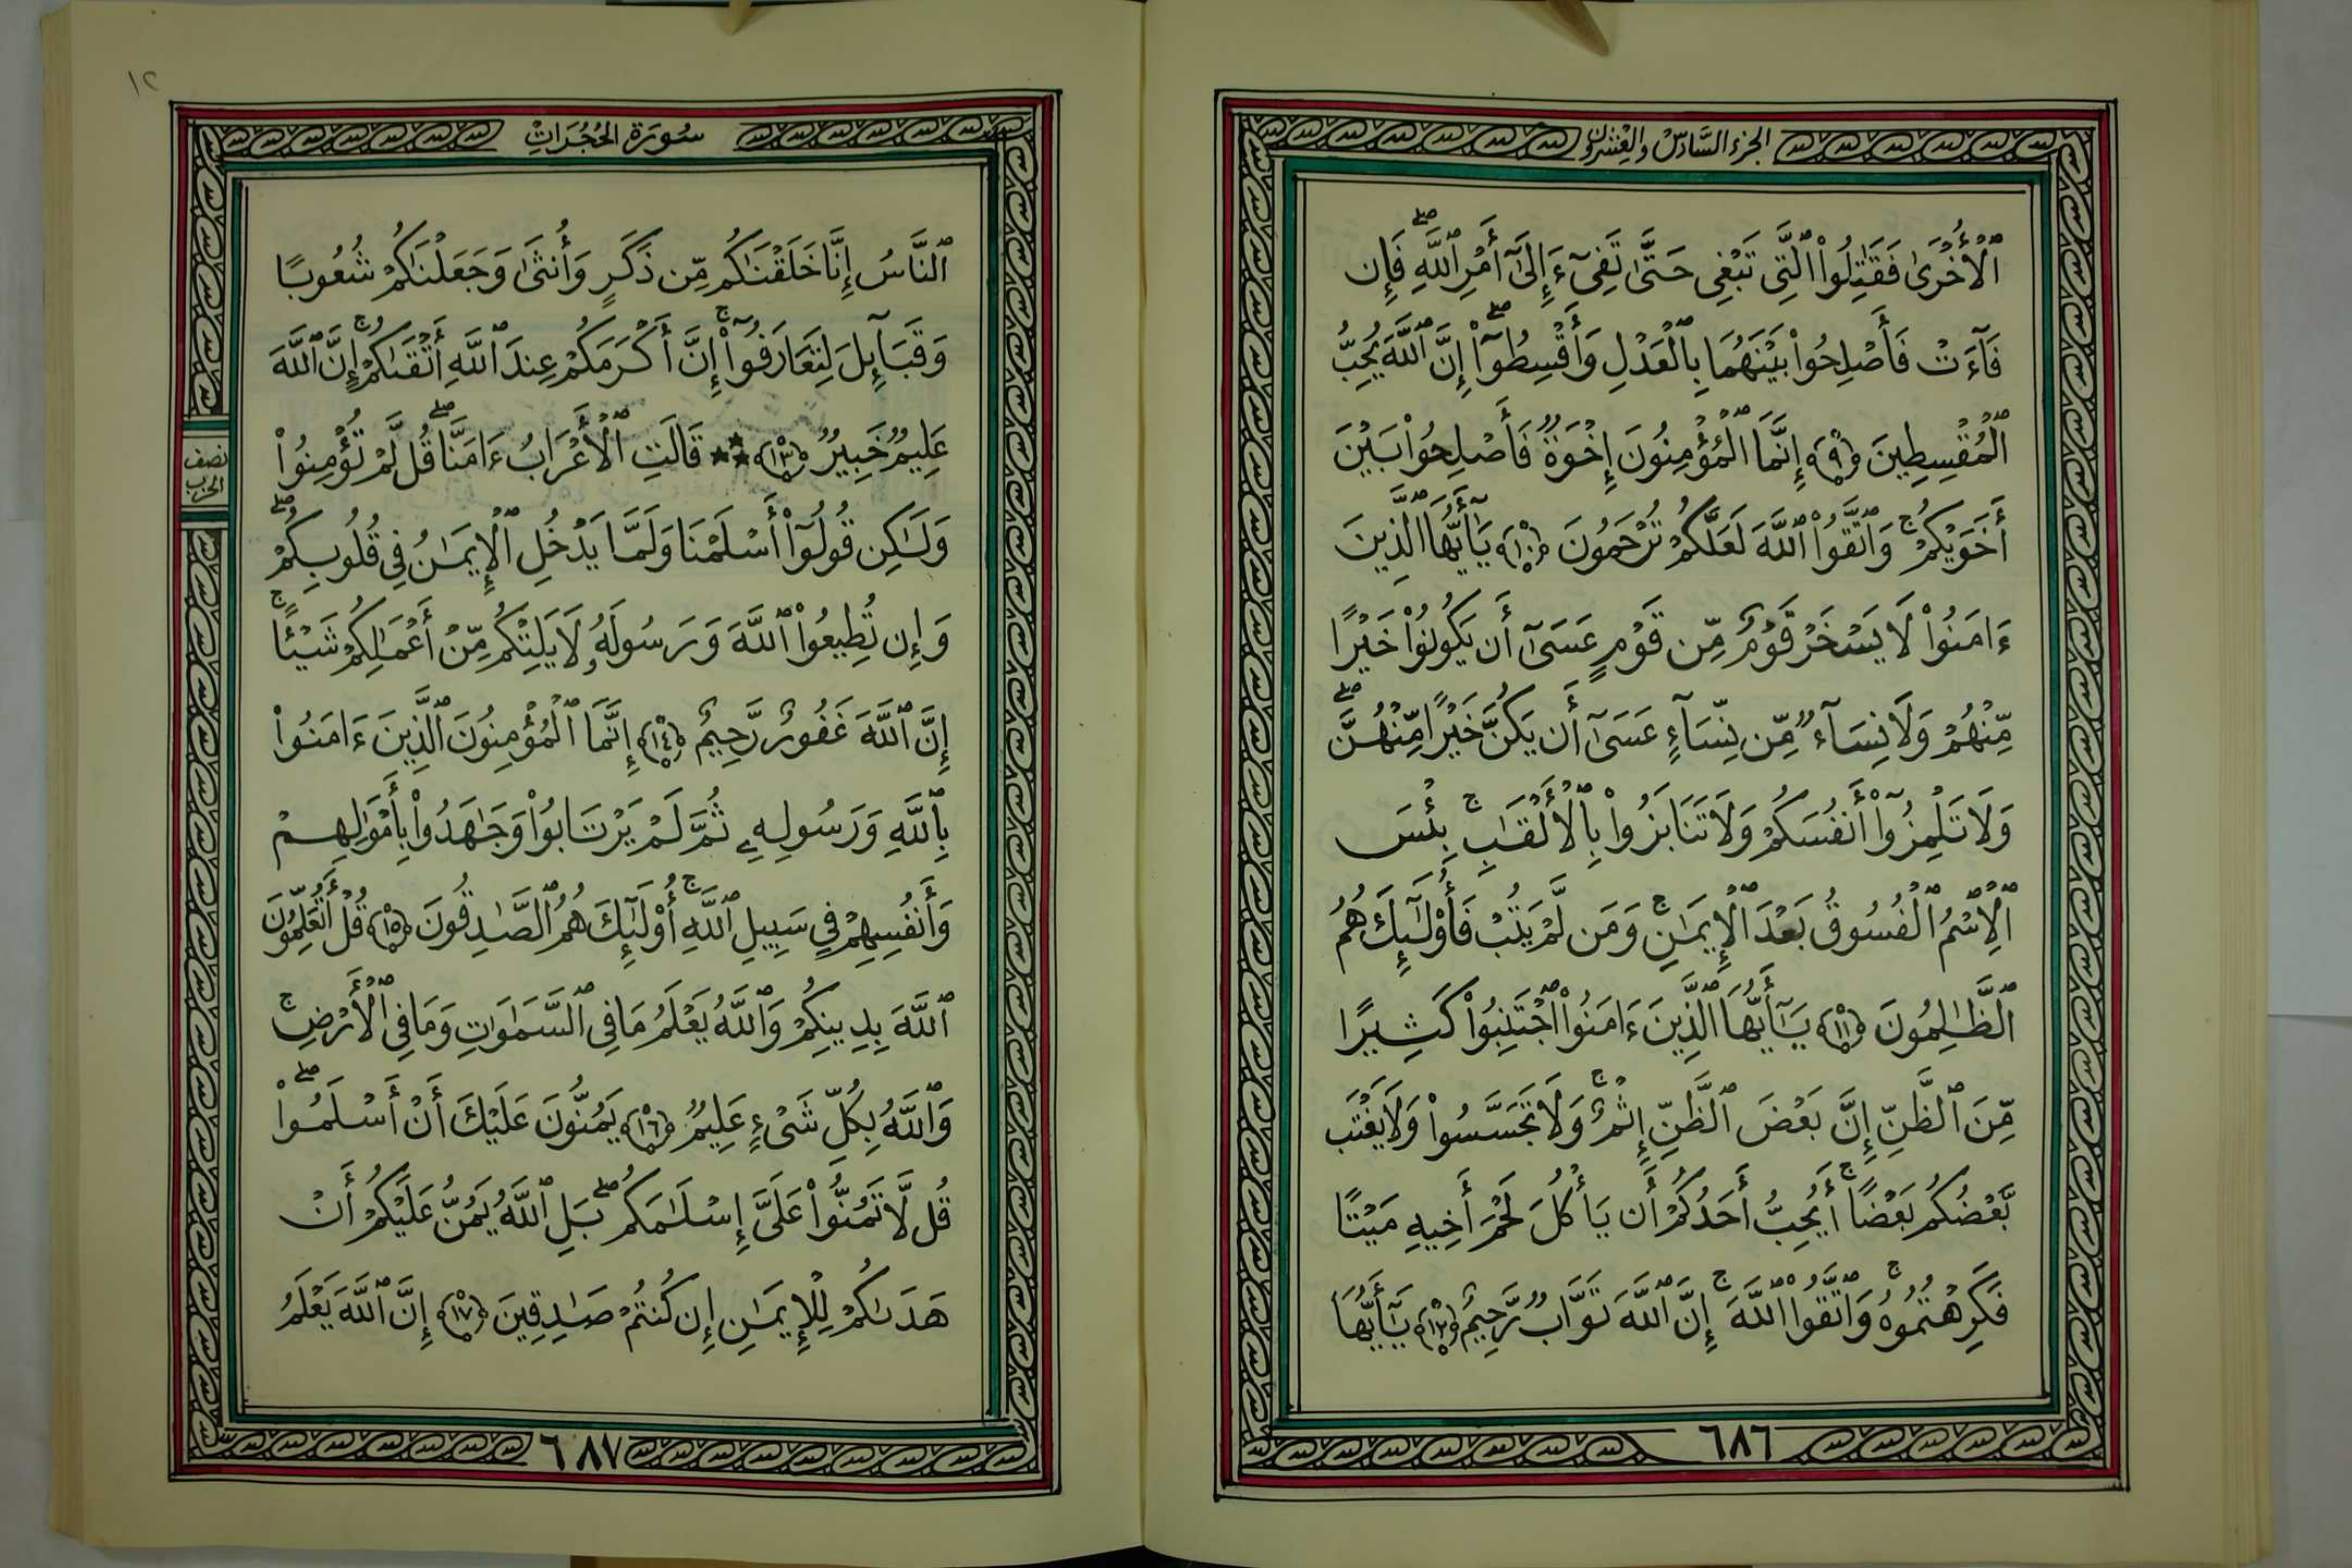 الجزء السَّادس والعشرون
ٱلْأُخْرَىٰ فَقَٰتِلُوا۟ ٱلَّتِى تَبْغِى حَتَّىٰ تَفِىٓءَ إِلَىٰٓ أَمْرِ ٱللَّهِ ۖ فَإِن
فَآءَتْ فَأَصْلِحُوا۟ بَيْنَهُمَا بِٱلْعَدْلِ وَأَقْسِطُوٓا۟ ۖ إِنَّ ٱللَّهَ يُحِبُّ
ٱلْمُقْسِطِينَ ﴿٩﴾ إِنَّمَا ٱلْمُؤْمِنُونَ إِخْوَةٌ فَأَصْلِحُوا۟ بَيْنَ
أَخَوَيْكُمْ ۚ وَٱتَّقُوا۟ ٱللَّهَ لَعَلَّكُمْ تُرْحَمُونَ ﴿١٠﴾ يَٰٓأَيُّهَا ٱلَّذِينَ
ءَامَنُوا۟ لَا يَسْخَرْ قَوْمٌ مِّن قَوْمٍ عَسَىٰٓ أَن يَكُونُوا۟ خَيْرًا
مِّنْهُمْ وَلَا نِسَآءٌ مِّن نِّسَآءٍ عَسَىٰٓ أَن يَكُنَّ خَيْرًا مِّنْهُنَّ ۖ
وَلَا تَلْمِزُوٓا۟ أَنفُسَكُمْ وَلَا تَنَابَزُوا۟ بِٱلْأَلْقَٰبِ ۚ بِئْسَ
ٱلِٱسْمُ ٱلْفُسُوقُ بَعْدَ ٱلْإِيمَٰنِ ۚ وَمَن لَّمْ يَتُبْ فَأُو۟لَٰٓئِكَ هُمُ
ٱلظَّٰلِمُونَ ﴿١١﴾ يَٰٓأَيُّهَا ٱلَّذِينَ ءَامَنُوا۟ ٱجْتَنِبُوا۟ كَثِيرًا
مِّنَ ٱلظَّنِّ إِنَّ بَعْضَ ٱلظَّنِّ إِثْمٌ ۚ وَلَا تَجَسَّسُوا۟ وَلَا يَغْتَب
بَّعْضُكُم بَعْضًا ۚ أَيُحِبُّ أَحَدُكُمْ أَن يَأْكُلَ لَحْمَ أَخِيهِ مَيْتًا
فَكَرِهْتُمُوهُ ۚ وَٱتَّقُوا۟ ٱللَّهَ ۚ إِنَّ ٱللَّهَ تَوَّابٌ رَّحِيمٌ ﴿١٢﴾ يَٰٓأَيُّهَا
٦٨٦
١٢
سُورَة الحُجُرَاتِ
ٱلنَّاسُ إِنَّا خَلَقْنَٰكُم مِّن ذَكَرٍ وَأُنثَىٰ وَجَعَلْنَٰكُمْ شُعُوبًا
وَقَبَآئِلَ لِتَعَارَفُوٓا۟ ۚ إِنَّ أَكْرَمَكُمْ عِندَ ٱللَّهِ أَتْقَىٰكُمْ ۚ إِنَّ ٱللَّهَ
عَلِيمٌ خَبِيرٌ ﴿١٣﴾ ★★★ قَالَتِ ٱلْأَعْرَابُ ءَامَنَّا ۖ قُل لَّمْ تُؤْمِنُوا۟
نصف
الحزب
وَلَٰكِن قُولُوٓا۟ أَسْلَمْنَا وَلَمَّا يَدْخُلِ ٱلْإِيمَٰنُ فِى قُلُوبِكُمْ ۖ
وَإِن تُطِيعُوا۟ ٱللَّهَ وَرَسُولَهُۥ لَا يَلِتْكُم مِّنْ أَعْمَٰلِكُمْ شَيْـًٔا ۚ
إِنَّ ٱللَّهَ غَفُورٌ رَّحِيمٌ ﴿١٤﴾ إِنَّمَا ٱلْمُؤْمِنُونَ ٱلَّذِينَ ءَامَنُوا۟
بِٱللَّهِ وَرَسُولِهِۦ ثُمَّ لَمْ يَرْتَابُوا۟ وَجَٰهَدُوا۟ بِأَمْوَٰلِهِمْ
وَأَنفُسِهِمْ فِى سَبِيلِ ٱللَّهِ ۚ أُو۟لَٰٓئِكَ هُمُ ٱلصَّٰدِقُونَ ﴿١٥﴾ قُلْ أَتُعَلِّمُونَ
ٱللَّهَ بِدِينِكُمْ وَٱللَّهُ يَعْلَمُ مَا فِى ٱلسَّمَٰوَٰتِ وَمَا فِى ٱلْأَرْضِ ۚ
وَٱللَّهُ بِكُلِّ شَىْءٍ عَلِيمٌ ﴿١٦﴾ يَمُنُّونَ عَلَيْكَ أَنْ أَسْلَمُوا۟ ۖ
قُل لَّا تَمُنُّوا۟ عَلَىَّ إِسْلَٰمَكُم ۖ بَلِ ٱللَّهُ يَمُنُّ عَلَيْكُمْ أَنْ
هَدَىٰكُمْ لِلْإِيمَٰنِ إِن كُنتُمْ صَٰدِقِينَ ﴿١٧﴾ إِنَّ ٱللَّهَ يَعْلَمُ
٦٨٧